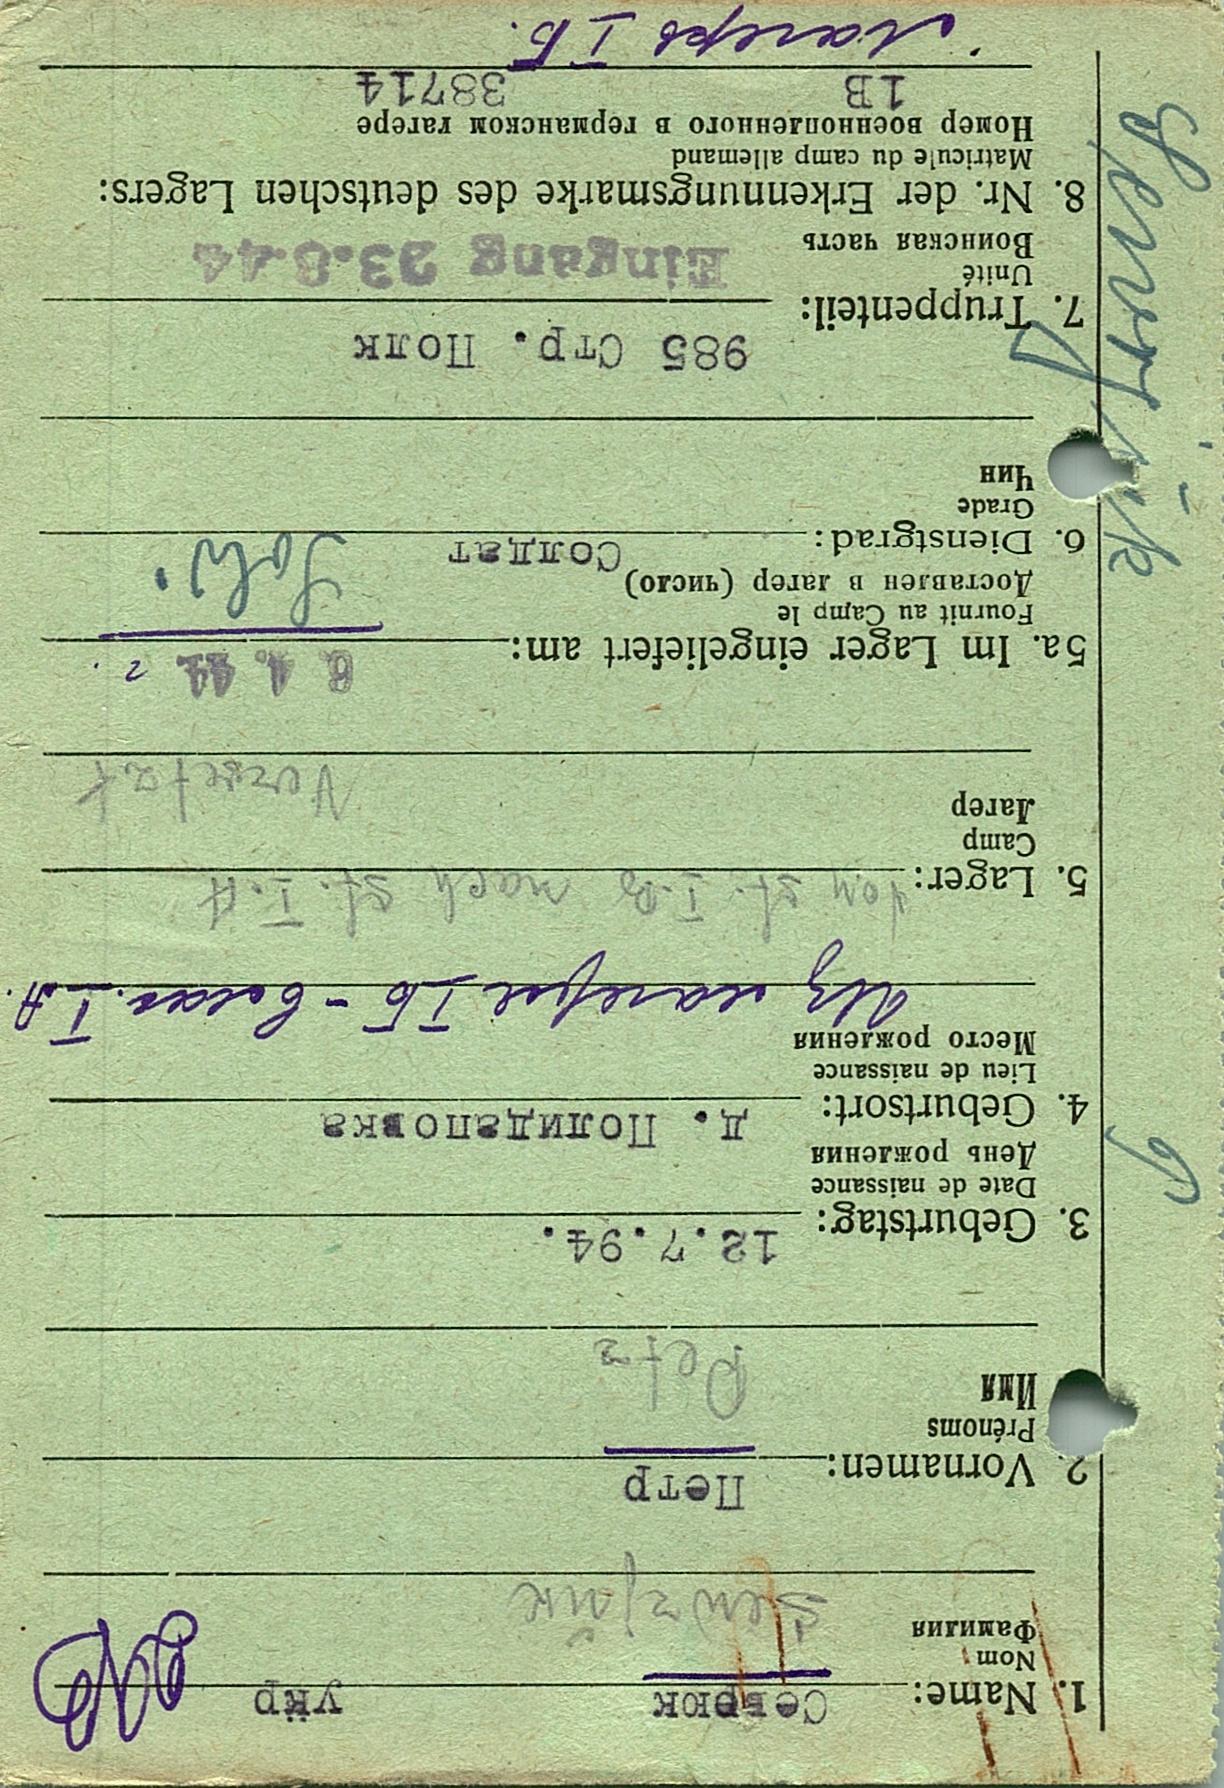 1. Name: Севрюк укр
Nom
Фамилия
Sewrjuk
2. Vornamen: Петр
Prénoms
Имя
Petr
3. Geburtstag: 12.7.94.
Date de naissance
День рождения
4. Geburtsort: д. Полидаповка
Lieu de naissance
Место рождения
Из лагеря IБ - в лаг. I A.
5. Lager: von St. I.B nach St. I.A
Camp
Лагерь
Versetzt
5a. Im Lager eingeliefert am:
Fournit au Camp le
Доставлен в лагерь (число)
6. Dienstgrad: Солдат
Grade
Чин
985 Стр. Полк
7. Truppenteil:
Unité
Воинская часть
Eingang 23.6.44
8. Nr. der Erkennungsmarke des deutschen Lagers:
Matricule du camp allemand
Номер военнопленного в германском лагере
1B 38714
Лагерь I Б.
Sewrjuk
P